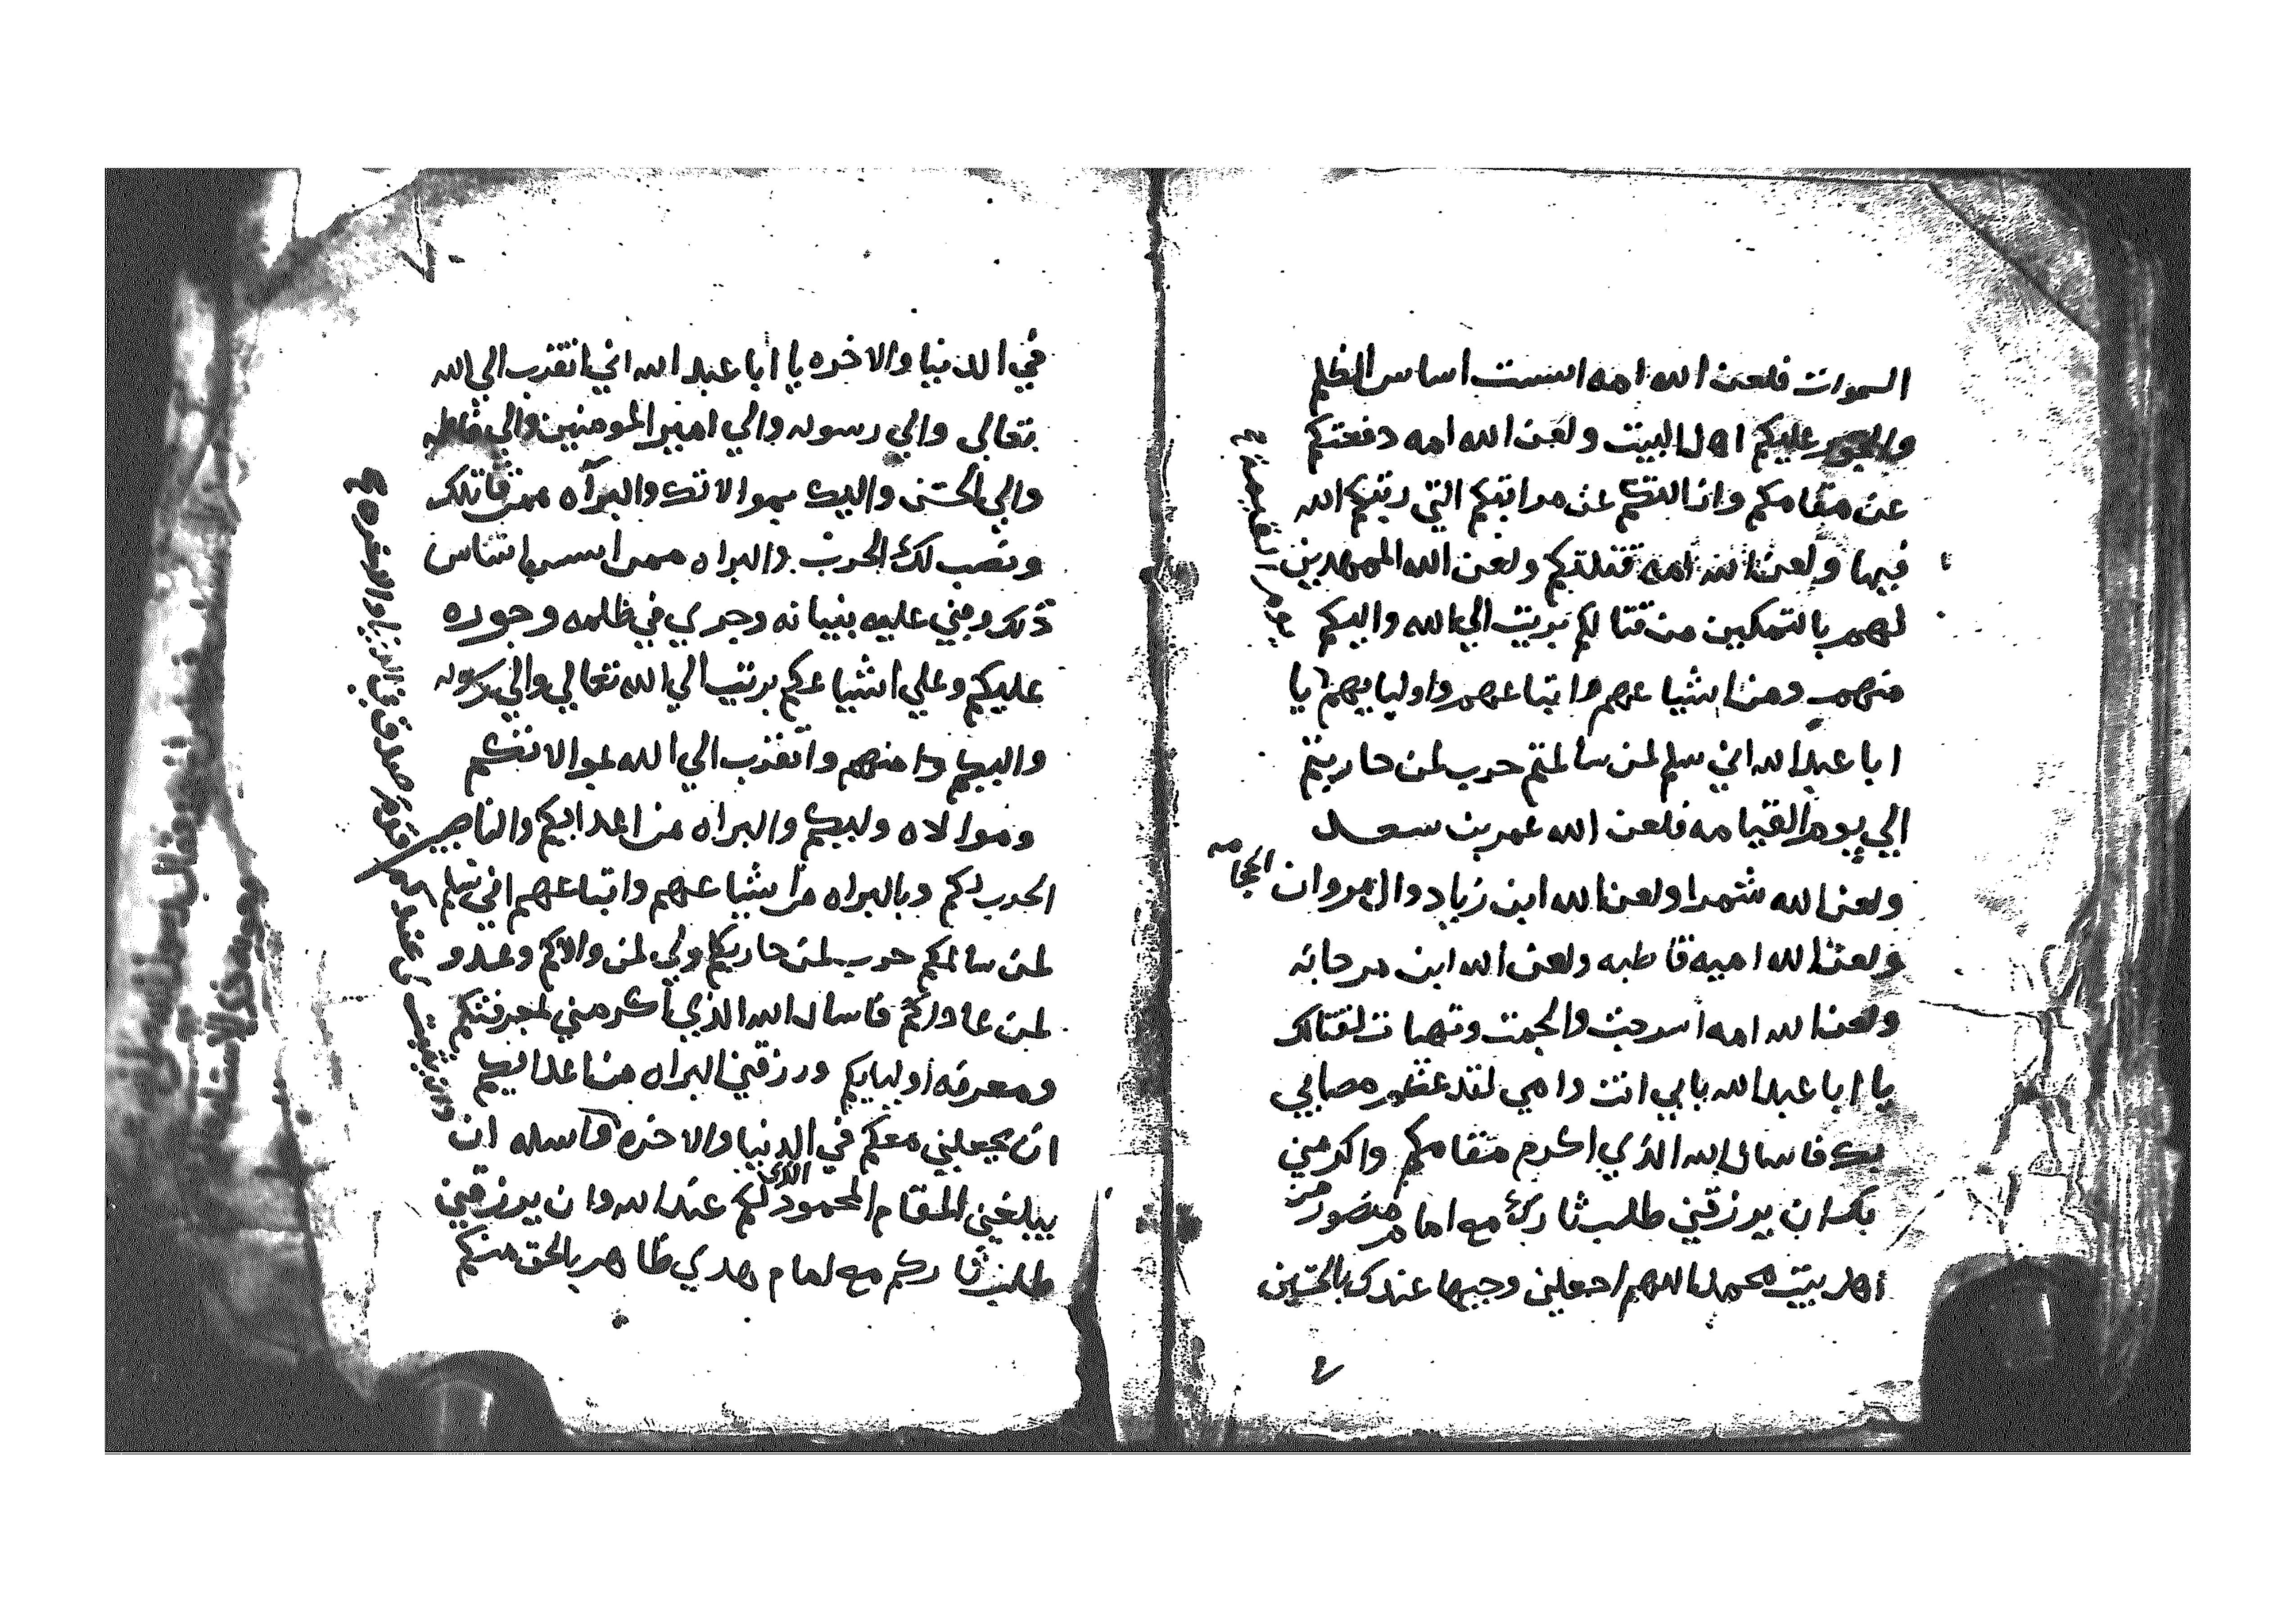 السموات فلعن الله امه اسست اساس الظلم
والجور عليكم اهل البيت ولعن الله امه دفعتكم
عن مقامكم وازالتكم عن مراتبكم التي رتبكم الله
فيها ولعن الله امه قتلتكم ولعن الله الممهدين
لهم بالتمكين من قتالكم بريت الي الله واليكم
منهم ومن اشياعهم واتباعهم واوليايهم يا
ابا عبد الله اني سلم لمن سالمتم حرب لمن حاربتم
الي يوم القيامه فلعن الله عمر بن سعد
ولعن الله شمرا ولعن الله ابن زياد وال مروان
ولعن الله اميه قاطبه ولعن الله ابن مرجانه
ولعن الله امه اسرجت والجمت وتهيات لقتالك
يا ابا عبد الله بابي انت وامي لقد عظم مصابي
بك فاسال الله الذي اكرم مقامكم واكرمني
بك ان يرزقني طلب ثارك مع امام منصور من
اهل بيت محمد اللهم اجعلني وجيها عندك بالحسين
يوم القيامة
في الدنيا والاخره يا ابا عبد الله اني اتقرب الي الله
تعالى والي رسوله والي امير المومنين والي فاطمه
والي الحسن واليك بموالاتك والبرآه ممن قاتلك
ونصب لك الحرب والبراه ممن اسس اساس
ذلك وبني عليه بنيانه وجري في ظلمه وجوره
عليكم وعلي اشياعكم بريت الي الله تعالي والي رسوله
واليكم منهم واتقرب الي الله بموالاتكم
وموالاه وليكم والبراه من اعدايكم والناصبين
الحرب لكم وبالبراه من اشياعهم واتباعهم اني سلم
لمن سالمكم حرب لمن حاربكم ولي لمن والاكم وعدو
لمن عاداكم فاسال الله الذي أكرمني بمعرفتكم
ومعرفه أوليايكم ورزقني البراه من اعدايكم
ان يجعلني معكم في الدنيا والاخره واسله ان
يبلغني المقام المحمود الذي لكم عند الله وان يرزقني
طلب ثاركم مع امام هدي ظاهر بالحق منكم
وان يثبت لي عندكم قدم صدق في الدنيا والاخره